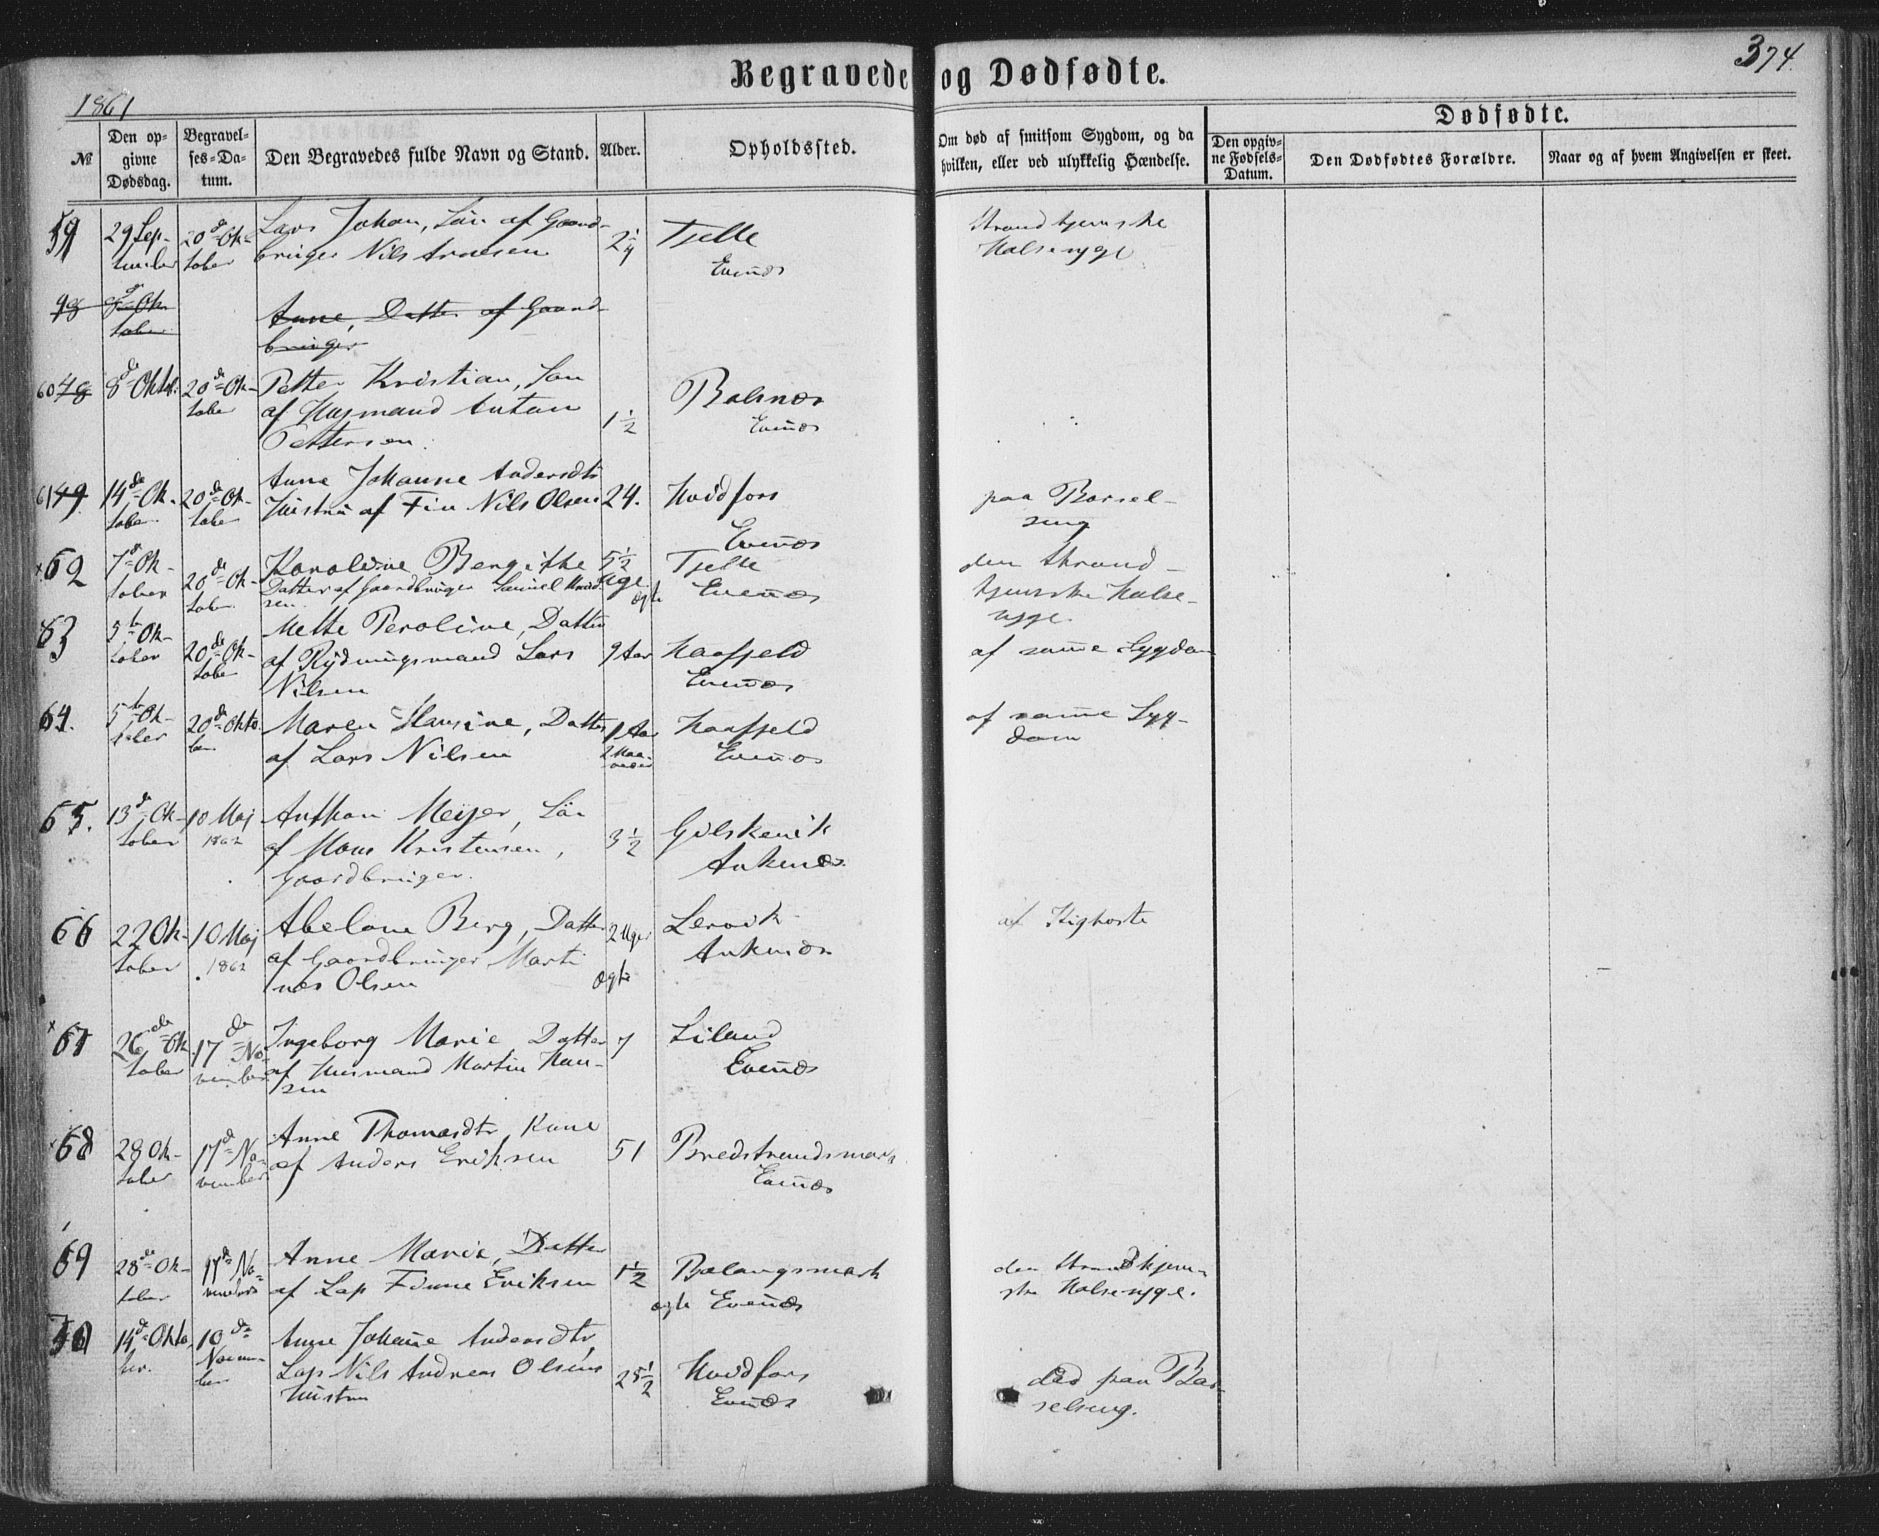 Begravede og Dødfødte.
374.
1861
№
Den opgivne Dødsdag.
Begravelses-Datum.
Den Begravedes fulde Navn og Stand.
Alder.
Opholdssted.
Om død af smitsom Sygdom, og da hvilken, eller ved ulykkelig Hændelse.
Dødfødte.
Den opgivne Fødsels-Datum.
Den Dødfødtes Forældre.
Naar og af hvem Angivelsen er skeet.
59 29 September 20de Oktober Lars Johan, Søn af Gaardbruger Nils Arnesen 2 1/4 Tjelle Evenæs Strandhjemske Halsesyge
48 8de Oktober Anne, Datter af Gaardbruger
60 48 8de Oktob. 20de Oktober Petter Kristian, Søn af Husmand Anton Pettersen. 1 1/2 Balsnæs Evenæs
61 49 14de Oktober 20de Oktober Anne Johanne Andersdtr Hustru af Fin Nils Olsen 24. Hvidfors Evenæs paa Barselseng
62 7de Oktober 20de Oktober Karoline Bergithe Datter af Gaardbruger Samuel Knudsen. 5 1/2 Uge ægte Tjelle Evenæs den Strandhjemske Halsesyge.
63 5te Oktober 20de Oktober Mette Peroline, Datter af Rydningsmand Lars Nilsen 9 Aar Haafjeld Evenæs af samme Sygdom
64. 5te Oktober 20de Oktober Maren Hansine, Datter af Lars Nilsen 1 Aar 2 Maaneder Haafjeld Evenæs af samme Sygdom
65. 13de Oktober 10 Maj 1862 Anthon Meyer, Søn af Hans Kristensen, Gaardbruger. 3 1/2 Ankenæs
66 22 Oktober 10 Maj 1862 Abelone Berg, Datter af Gaardbruger Martines Olsen 2 Uger ægte Lervik Ankenæs af Kighoste
67 26de Oktober 17de November Ingeborg Marie Datter af Husmand Martin Hansen 7 Liland Evenæs
68 28 Oktober 17de November Anne Thomasdtr, Kone af Anders Eriksen 51 Bredstrandsmark Evenæs
69 28de Oktober 17de November Anne Marie, Datter af Lap Finne Eriksen 1 1/2 ægte Balangsmark Evenæs den Strandhjemske Halsesyge.
70 14de Oktober. 10de November Anne Johanne Andersdtr, Lap Nils Andreas Olsens Hustru 25 1/2 Hvidfors Evenæs død paa Barselseng.